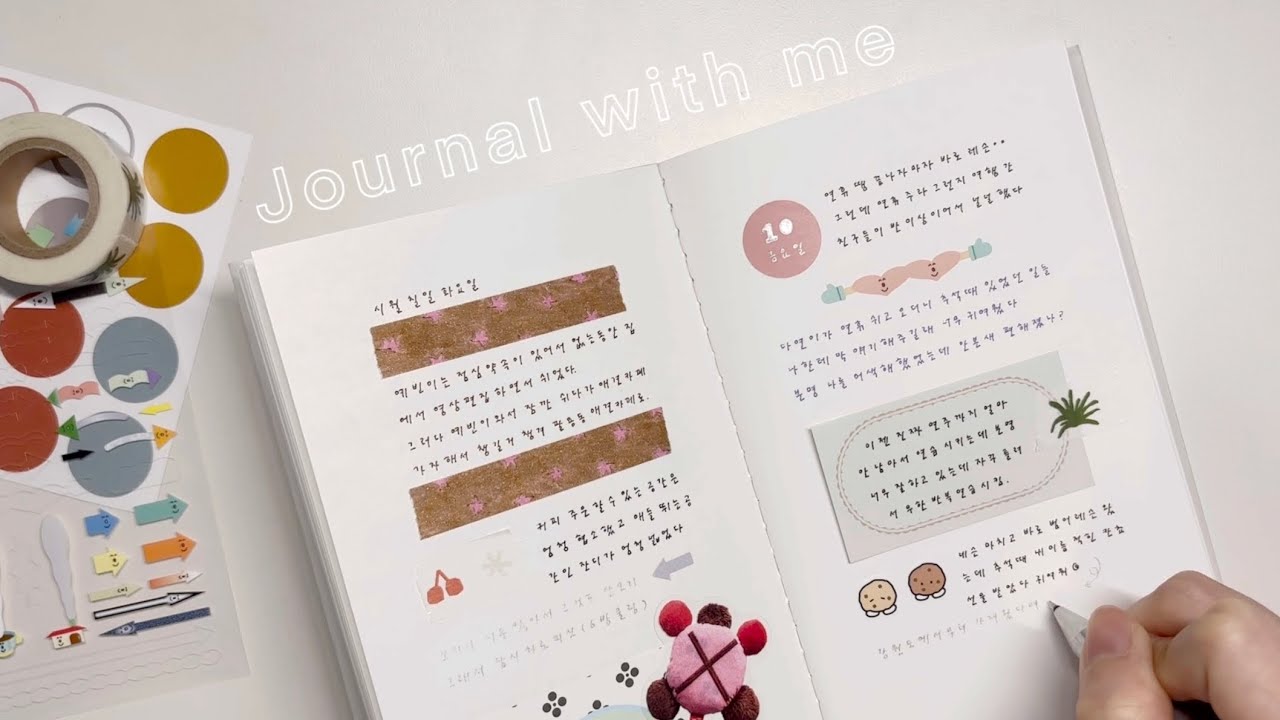 Journal with me
시월 칠일 화요일
예빈이는 점심약속이 있어서 없는동안 집
에서 영상편집하면서 쉬었다.
그러다 예빈이와서 잠깐 쉬다가 애견카페
가자해서 챙길거 챙겨 팔등동 애견카페로.
커피 주문할 수 있는 공간은
엄청 협고했고 애들 뛰는공
간인 잔디가 엄청 넓었다
10
금요일
연휴 땡 끝나자마자 바로 레슨..
그런데 연휴 주라 그런지 여행 간
친구들이 반이상이어서 널널했다
다연이가 연휴 쉬고 오더니 추석때 있었던 일들
나한테 막 얘기해주길래 너무 귀여웠다
분명 나를 어색해했었는데 안본새 편해졌나?
이젠 진짜 연주까지 얼마
안남아서 연습 시키는데 분명
너무 잘하고 있는데 자꾸 틀려
서 무한 반복연습시킴.
레슨 마치고 바로 범어레슨 왔
는데 추석때
선물 받았다 귀여워